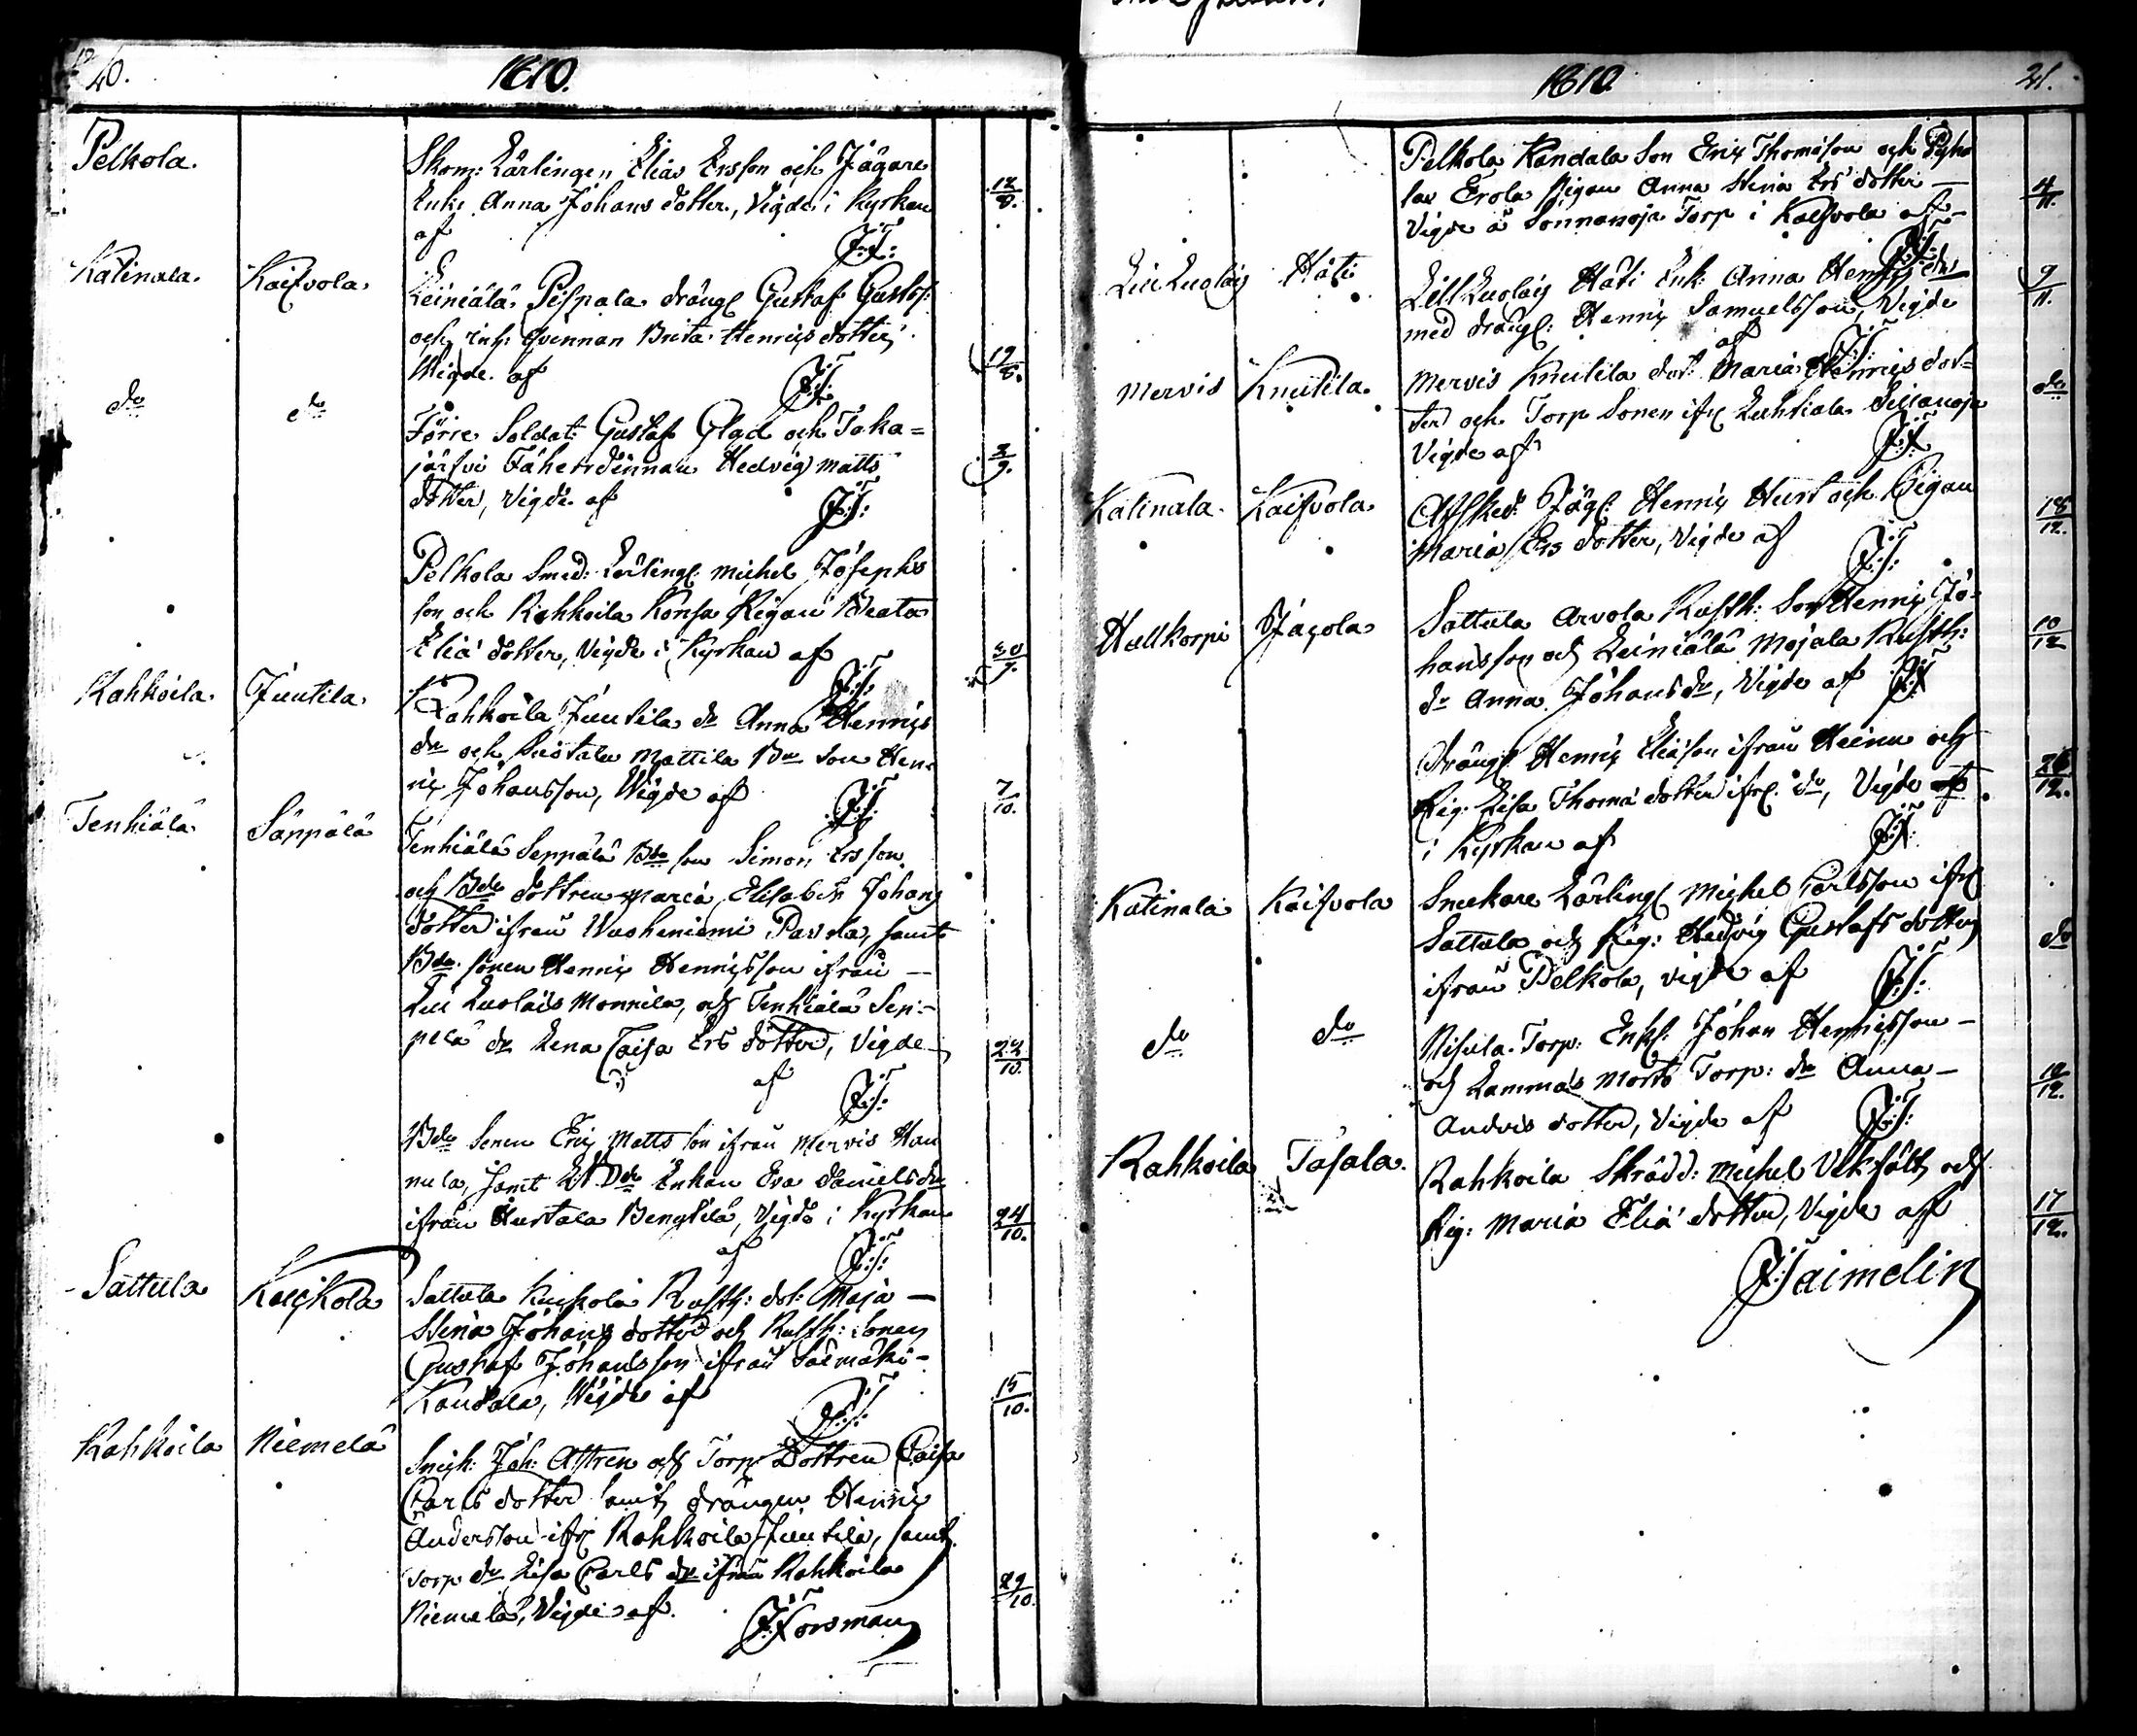 40. 1810.
Pelkola.
Skom: Lärlingen Elias Ersson och Jägare
Enk: Anna Johans dotter, Vigde i Kyrkan 12/8.
af J:F:
Katinala. Kaifvola.
Leiniälä Pispala dräng Gustaf Gustafs:
och inh: Qvinnan Brita Henrics dotter
Vigde af J:F: 19/8.
do do
Förre Soldat: Gustaf Glad och Taka=
järfvi Fäherdinnan Hedvig Matts 2/9.
dotter, Vigde af J:F:
Pelkola Smed: Lärling: Michel Josephs
son och Rahkoila Konsa Pigan Beata
Eliä dotter, Vigde i Kyrkan af 30/9.
J:F:
Rahkoila. Juutila.
Rahkoila Juutila dr Anna Henrics
dr och Mattila Bde son Hen
ric Johansson, Vigde af J:F: 7/10.
Tenhiälä Säppälä
Tenhiälä Seppälä Bde son Simon Ersson
och Bde dottren Maria Elisabet Johans
dotter ifrån Wuoheniemi Pavola, samt
Bde sonen Henric Henricsson ifrån —
Lill Luolais Monnila, och Tenhiälä Sep-
pelä dr Lena Caisa Ers dotter, Vigde 22/10.
af J:F:
Bde Sonen Eric Matts son ifrån Mervis Han
nula, samt Bde Enkan Eva Daniels dr
ifrån Hurtala Bengtilä, Vigde i Kyrkan 24/10.
af J:F:
Sattula Kuckola
Sattula Kuckola Rusth: dot: Maja —
Stina Johans dotter och Rusth: Sonen
Gustaf Johansson ifrån Saimäki-
Kandala, Vigde af J:F: 15/10.
Rahkoila Niemelä
Snick: Joh: Astren och Torp: Dottren Caisa
Carls dotter samt drängen Henric
Andersson ifr: Rahkoila Juutila, samt
Torp: dr Lisa Carls dr ifrån Rahkoila 29/10.
Niemelä, Vigde af
J:Forsman
1810. 41.
Pelkola Kandala Son Eric Thomasson och
Erola Pigan Anna Stina Ers dotter — 4/11.
Vigde å Sonnanoja Torp i Kaifvola af
J:F:
Lill Luolais Häti
Lill Luolais Häti Enk: Anna Henrics dr 9/11.
med dräng: Henric Samuelsson, Vigde
af J:F:
Mervis Knutila.
Mervis Knutila dot: Maria Henrics dot= do
ter och Torp Sonen ifr: Luhtiala
Vigde af J:F:
Katinala. Kaifvola.
Afsked: Jäg: Henric Hurt och Pigan 18/12.
Maria Ers dotter, Vigde af J:F:
Hallkorpi Jägola
Sattula Arvola Rusth: Son Henric Jo-
hansson och Leiniälä Mojala Rusth: 10/12
dr Anna Johans dr, Vigde af J:F:
Dräng: Henric Eliäson ifrån Heinu och 26/12.
Pig: Lisa Thomä dotter ifr: do, Vigde
i Kyrkan af J:F:
Katinala Kaifvola
Snickare Lärling: Michel Carlsson ifr:
Sattula och Pig: Hedvig Gustafs dotter do
ifrån Pelkola, Vigde af J:F:
do do
Nisula Torp: Enkl: Johan Henricsson —
och Lammais Torp: dr Anna — 10/12.
Anders dotter, Vigde af J:F:
Rahkoila Tåfala.
Rahkoila Skrädd: Michel och
Pig: Maria Eliä dotter, Vigde af 17/12.
J:Saimelin